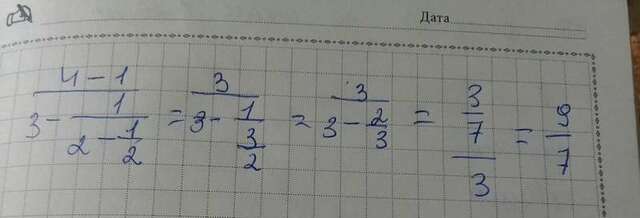 Дата
\frac{4-1}{3-\frac{1}{2-\frac{1}{2}}} = \frac{3}{3-\frac{1}{\frac{3}{2}}} = \frac{3}{3-\frac{2}{3}} = \frac{\frac{3}{7}}{3} = \frac{9}{7}